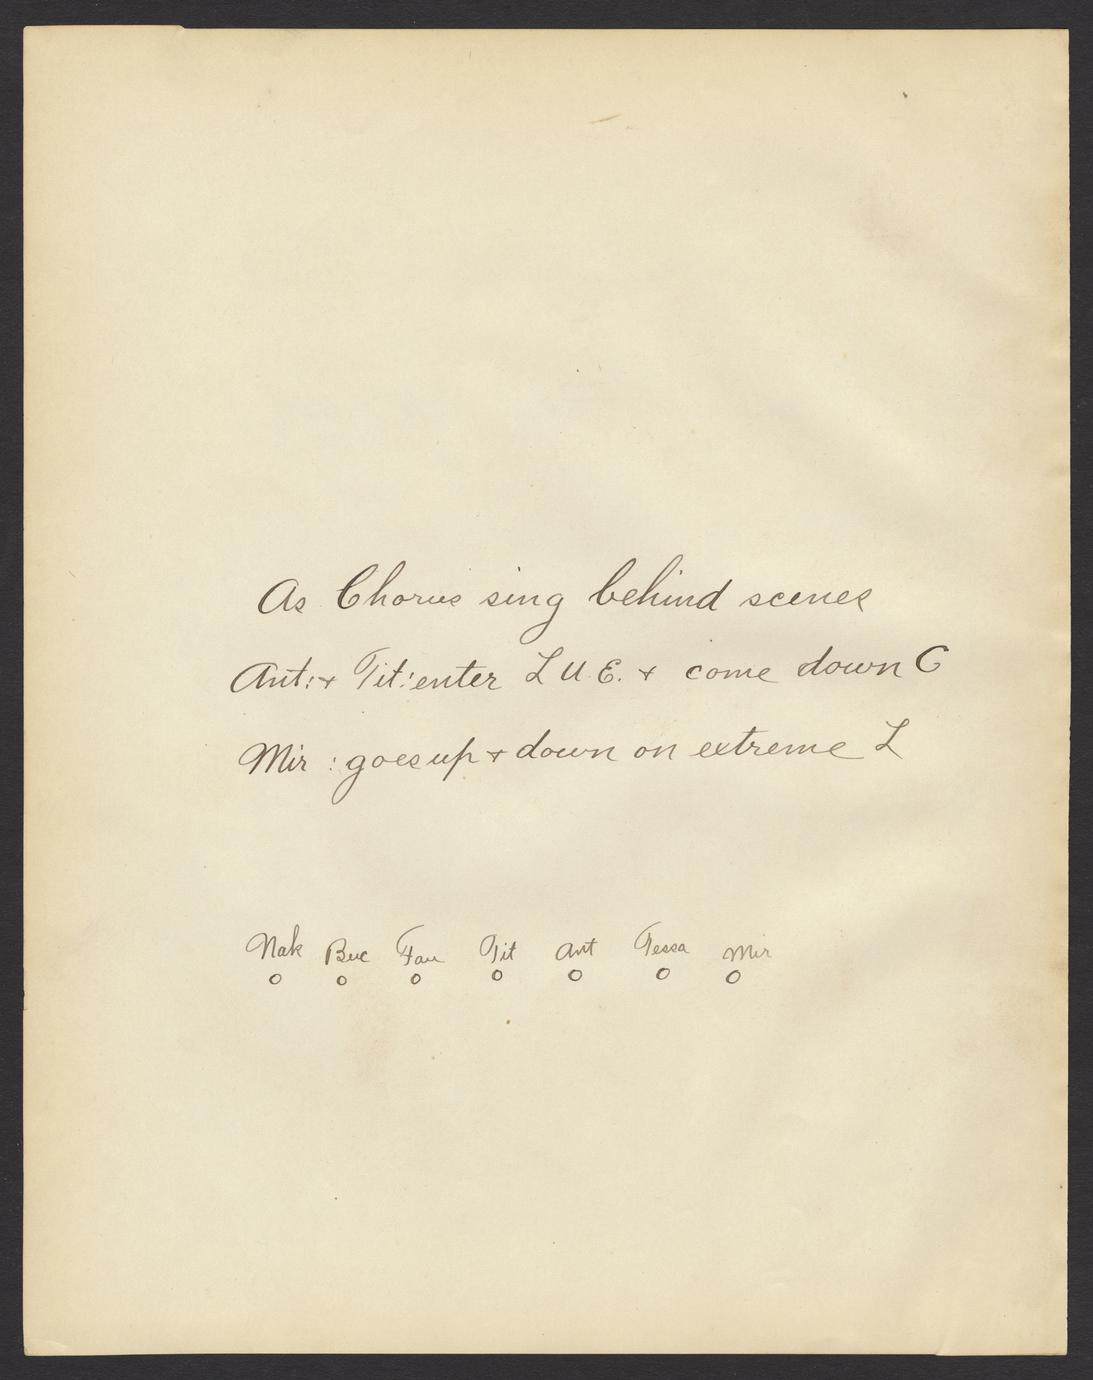 As Chorus sing behind scenes
Ant: + Tit: enter L U. E. + come down C
Mir : goes up + down on extreme L
Nak Buc Fau Tit Ant Tessa Mir
o o o o o o o